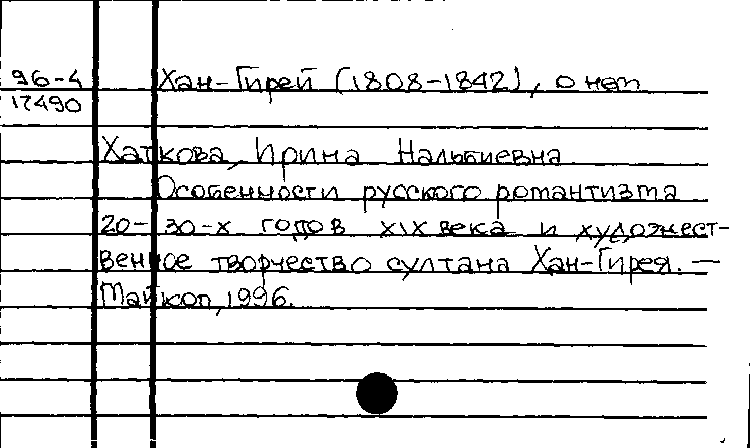 96-4 Хан-Гирей (1808-1842), о нем
17490
Хаткова, Ирина Нальбиевна
Особенности русского романтизма
20-30-х годов XIX века и художест-
венное творчество султана Хан-Гирея. —
Майкоп, 1996.